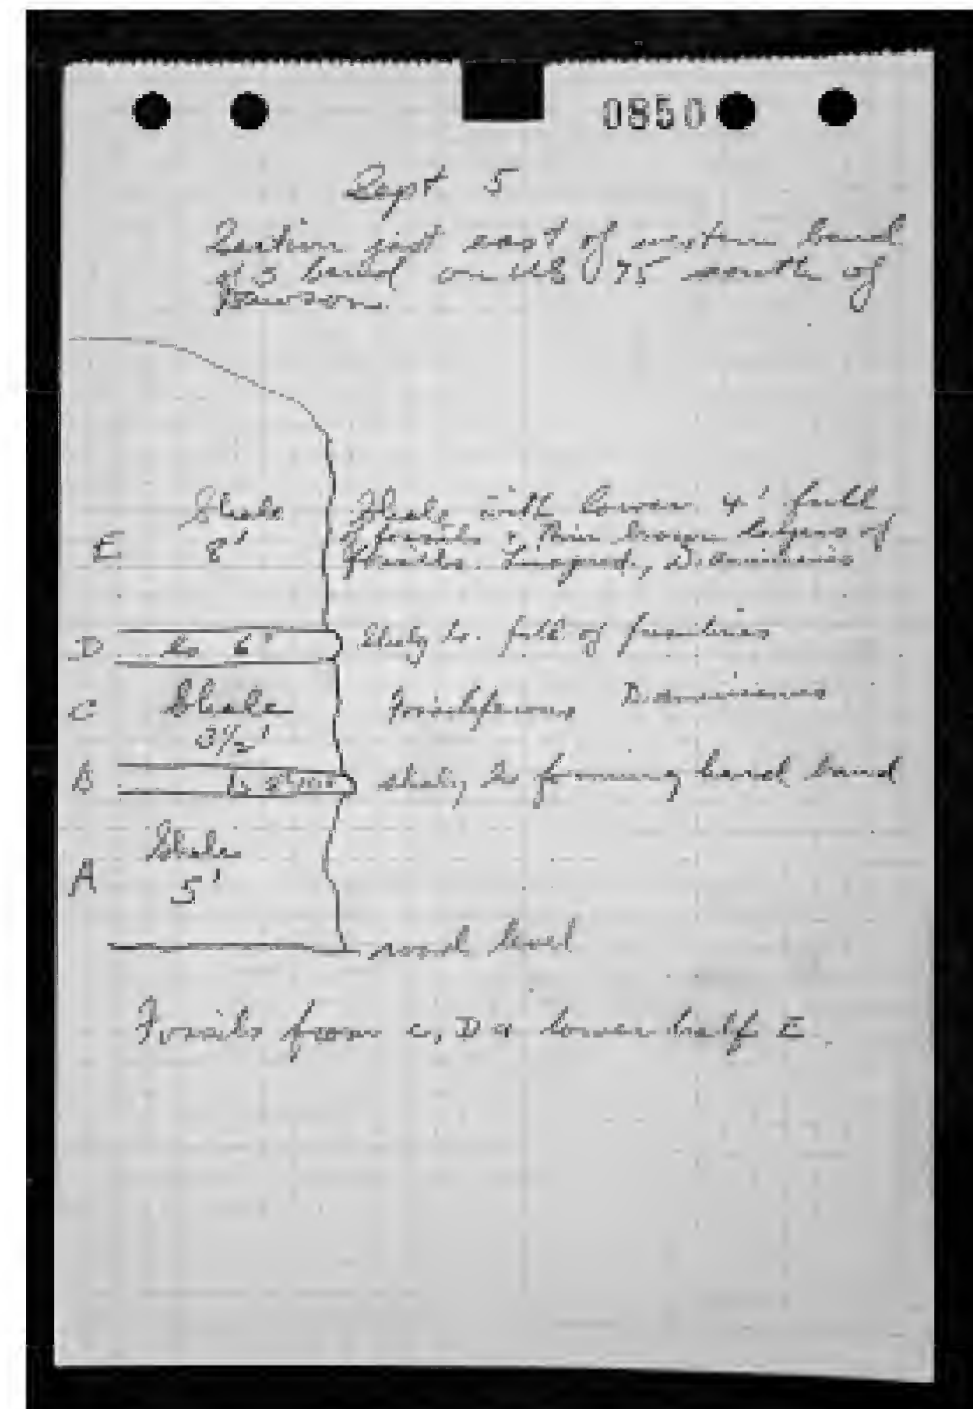 0850
Sept 5
Section just east of western bend
of S bend on US 75 south of
Dawson.
Shale Shale with lower 4' full
E 8' of fossils & thin brown layers of
fossils.
D ls 6" Shaly ls. full of fusulines
C Shale Fossiliferous
3½'
B ls shaly ls forming hard band
Shale
A 5'
road level
Fossils from C, D & lower half E.